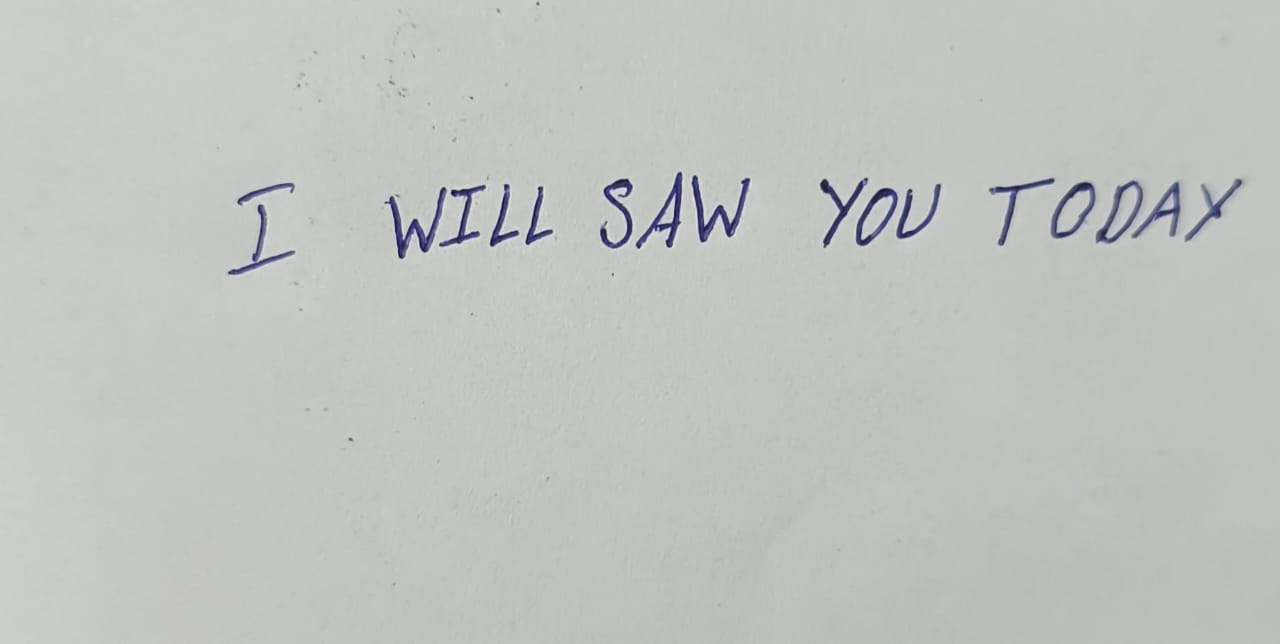 I WILL SAW YOU TODAY